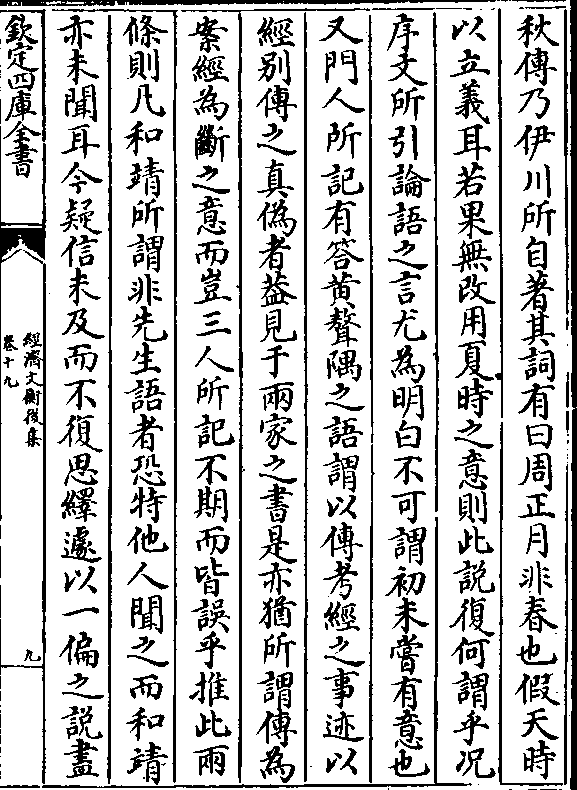 秋傳乃伊川所自著其詞有曰周正月非春也假天時
以立義耳若果無改用夏時之意則此說復何謂乎况
序文所引論語之言尤為明白不可謂初未嘗有意也
又門人所記有答黄聱隅之語謂以傳考經之事迹以
經别傳之真偽者葢見于兩家之書是亦猶所謂傳為
案經為斷之意而豈三人所記不期而皆誤乎推此兩
條則凡和靖所謂非先生語者恐特他人聞之而和靖
亦未聞耳今疑信未及而不復思繹遽以一偏之說盡
欽定四庫全書
經濟文衡後集
卷十九
九